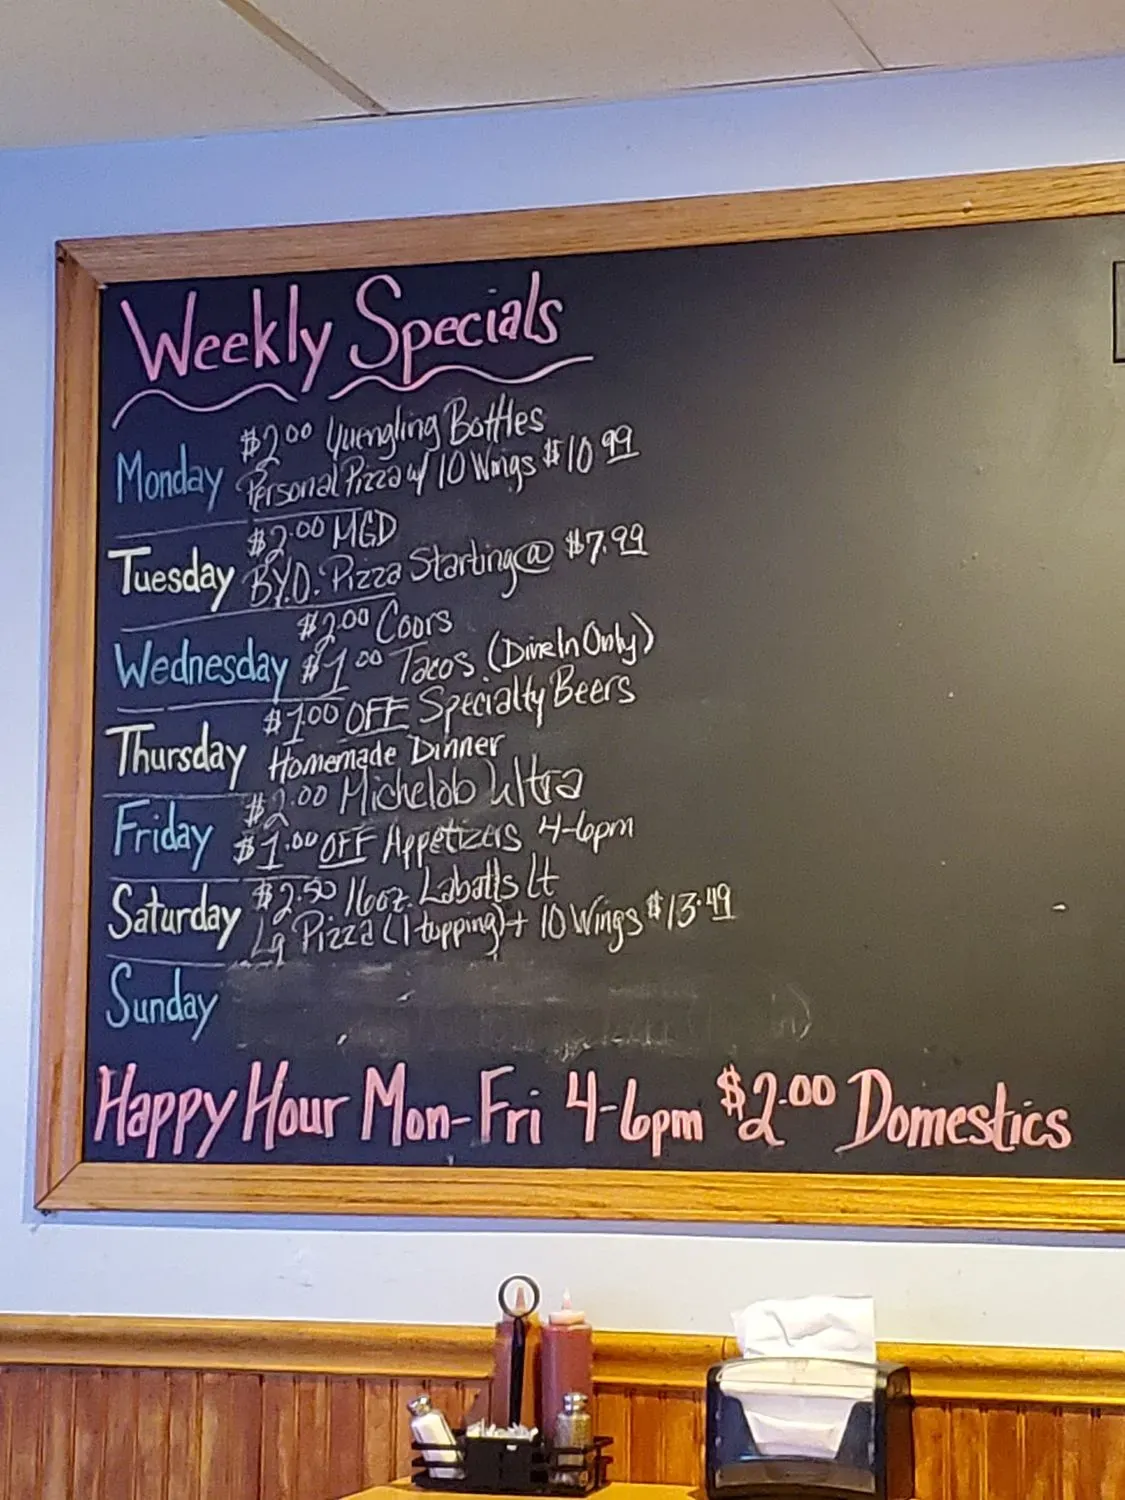 Weekly Specials
Monday $2.00 Yuengling Bottles
Personal Pizza w/ 10 Wings $10.99
Tuesday $2.00 MGD
B.Y.O. Pizza Starting @ $7.99
Wednesday $2.00 Coors
$1.00 Tacos (Dine In Only)
Thursday $1.00 OFF Specialty Beers
Homemade Dinner
Friday $2.00 Michelob Ultra
$1.00 OFF Appetizers 4-6pm
Saturday $2.50 16oz. Labatts Lt
Lg Pizza (1 topping) + 10 Wings $13.49
Sunday
Happy Hour Mon-Fri 4-6pm $2.00 Domestics